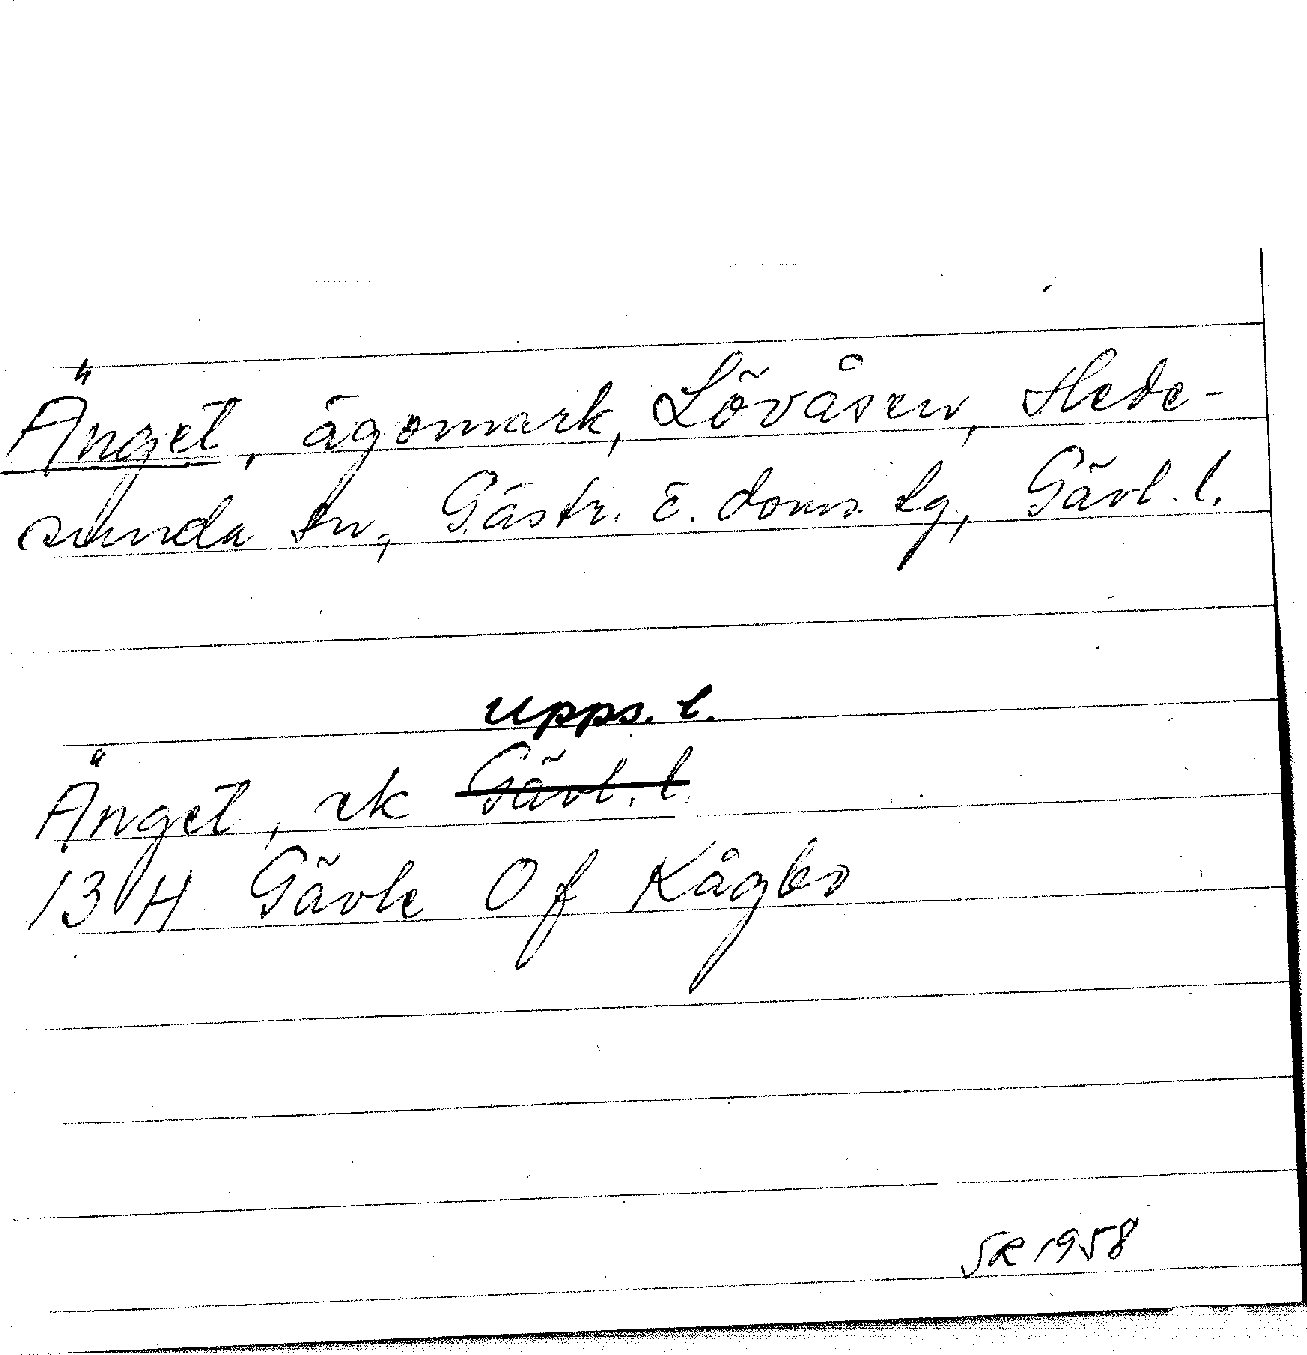 Änget, ägomark, Lövåsen, Hede-
sunda sn, Gästr. ö. doms. lg, Gävl. l.
Upps. l.
Änget, rk Gävl. l.
13 H Gävle 0f Kågbo
SR 1958